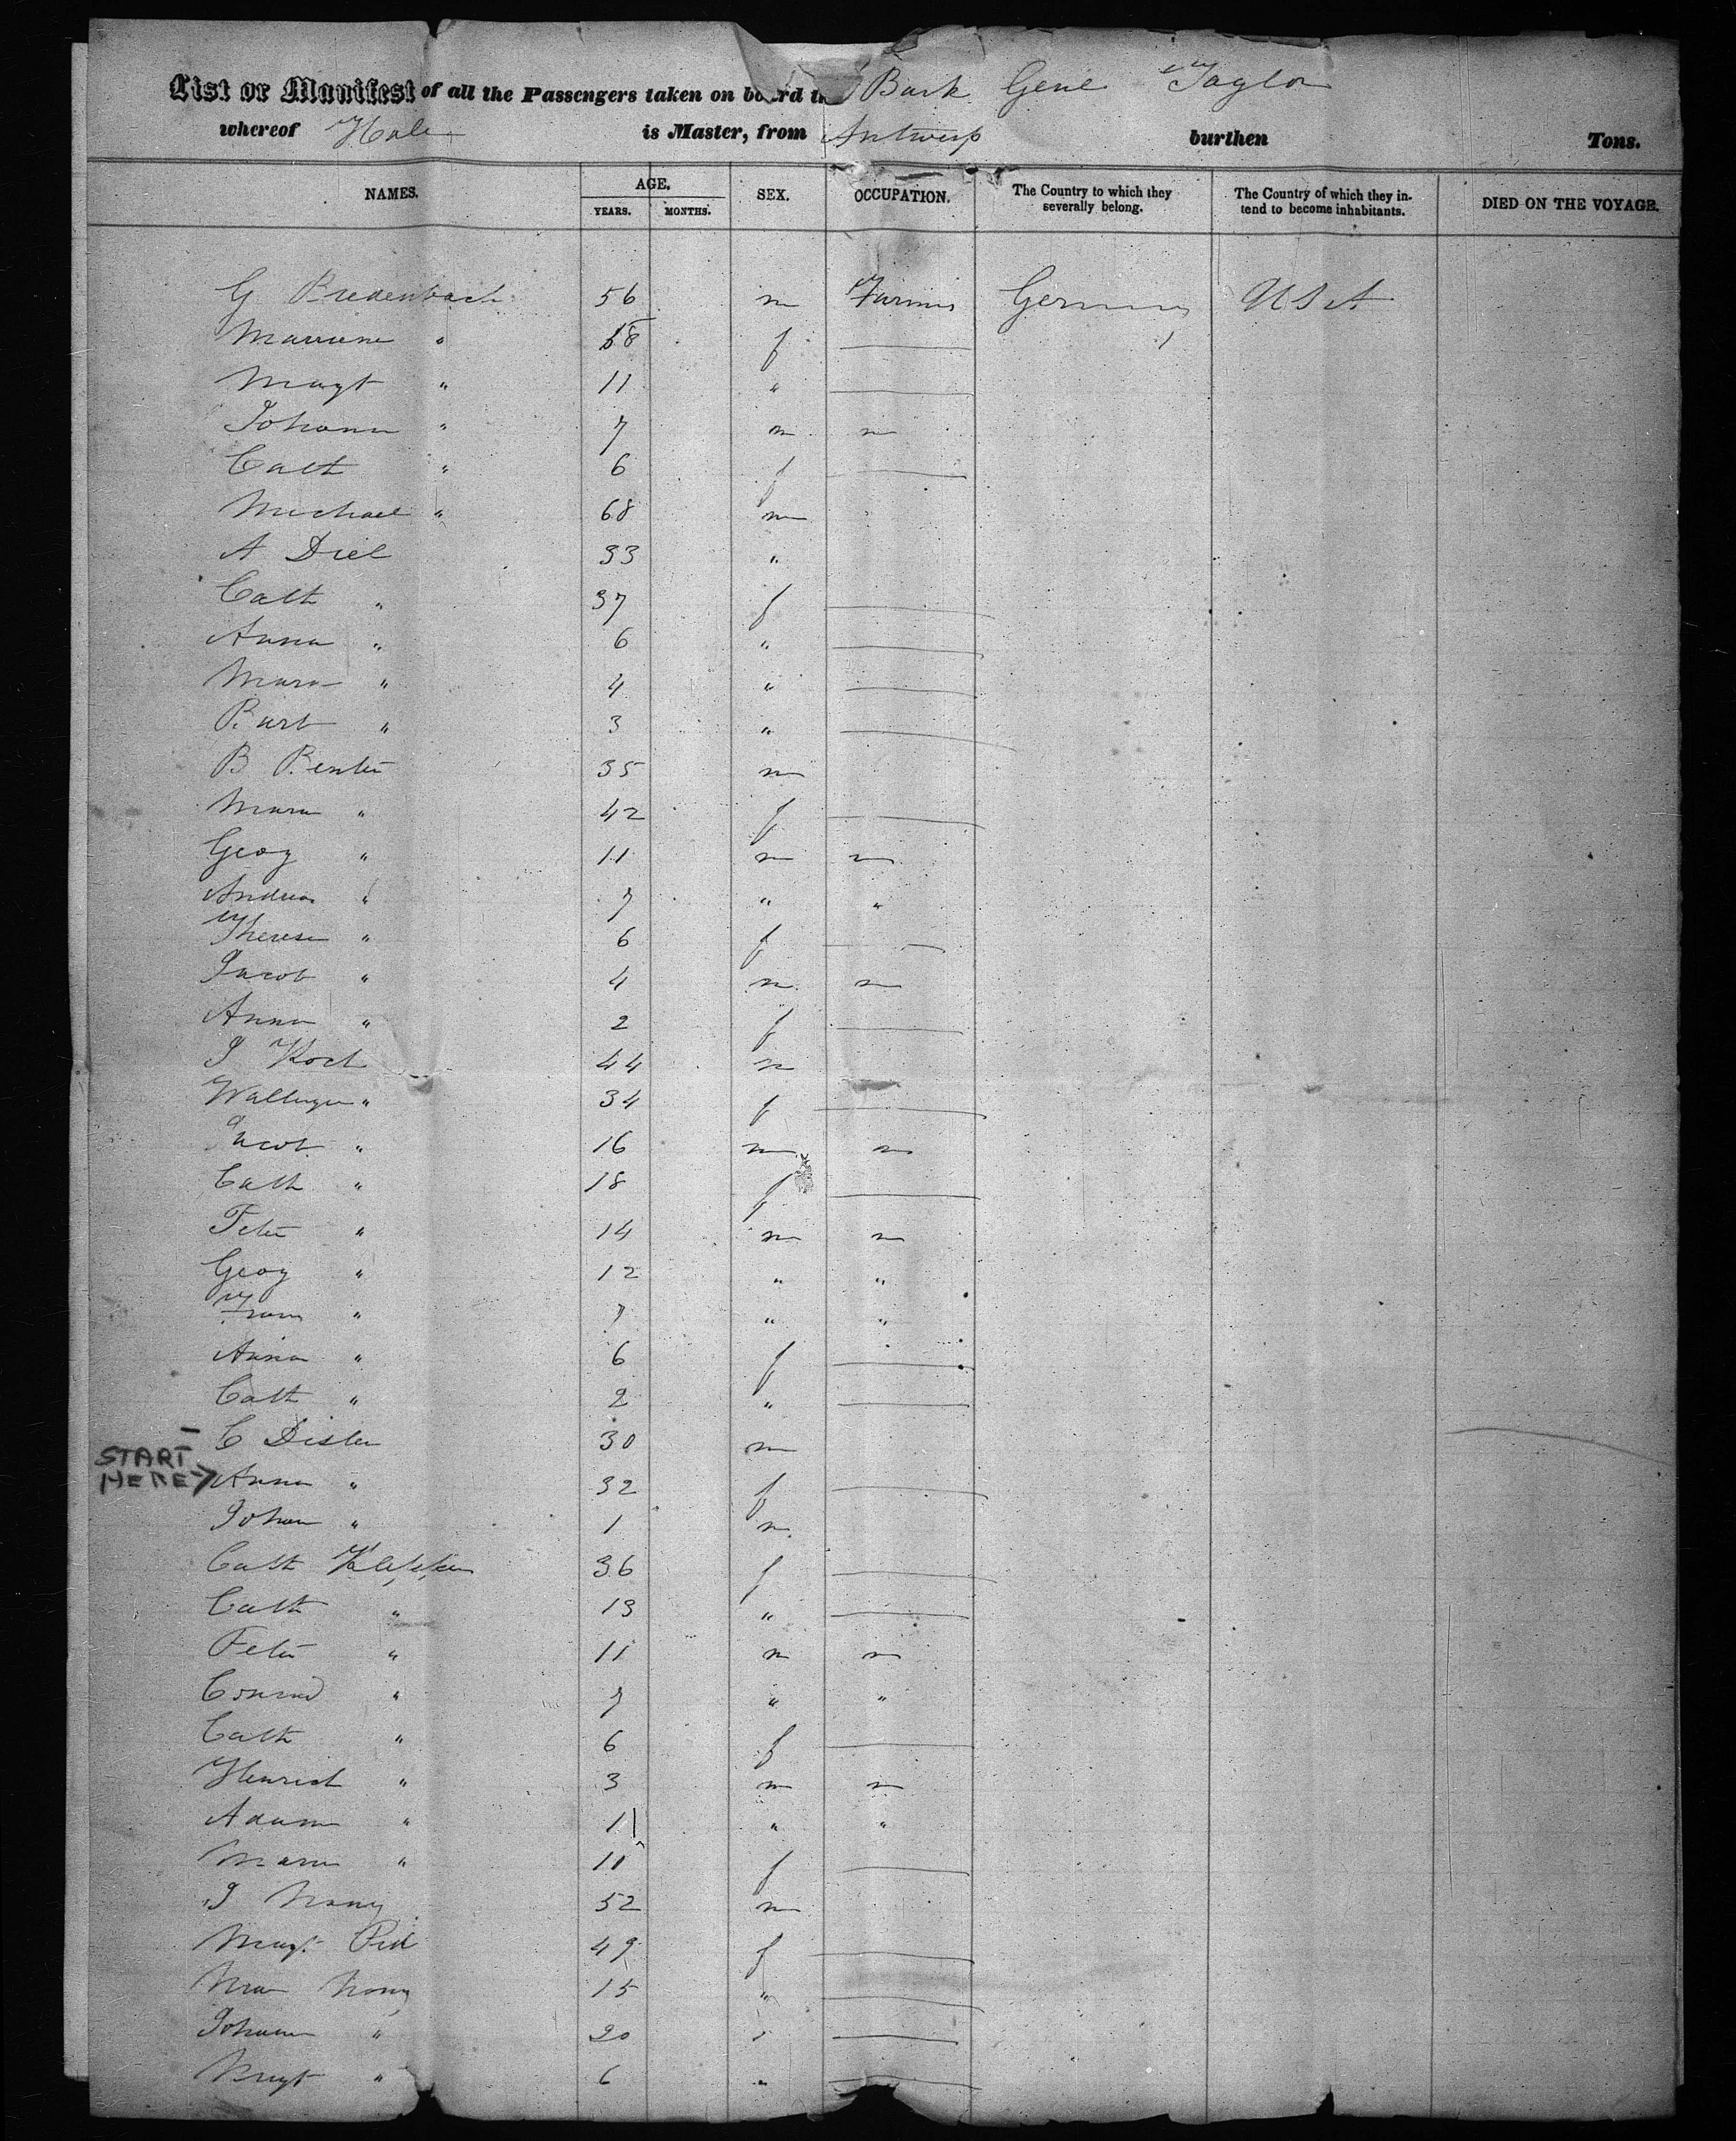 List or Manifest of all the Passengers taken on board the Bark Genl Taylor
whereof Hale is Master, from Antwerp burthen Tons.
NAMES. AGE. YEARS. MONTHS. SEX. OCCUPATION. The Country to which they severally belong. The Country of which they intend to become inhabitants. DIED ON THE VOYAGE.
G Bredenbach 56 m Farmer Germany USA
Marianne " 58 f
Margt " 11 "
Johann " 7 m m
Cath " 6 f
Michael " 68 m
A Diel 33 "
Cath " 37 f
Anna " 6 "
Mara " 4 "
Barb " 3 "
B 35 m
Mara " 42 f
Georg " 11 m m
Andreas " 7 " "
Therese " 6 f
Jacob " 4 m m
Anna " 2 f
J Koch 44 m
" 34 f
Jacob " 16 m m
Cath " 18 f
Peter " 14 m m
Georg " 12 " "
Franz " 7 " "
Anna " 6 f
Cath " 2 "
C Disler 30 m
START HERE → Anna " 32 f
Johan " 1 m
Cath 36 f
Cath " 13 "
Peter " 11 m m
Conrad " 7 " "
Cath " 6 f
Henrich " 3 m m
Adam " 11 " "
Maria " 11 f
J Nony 52 m
Margt 49 f
Nony 15 "
Johann " 20 "
Margt " 6 "